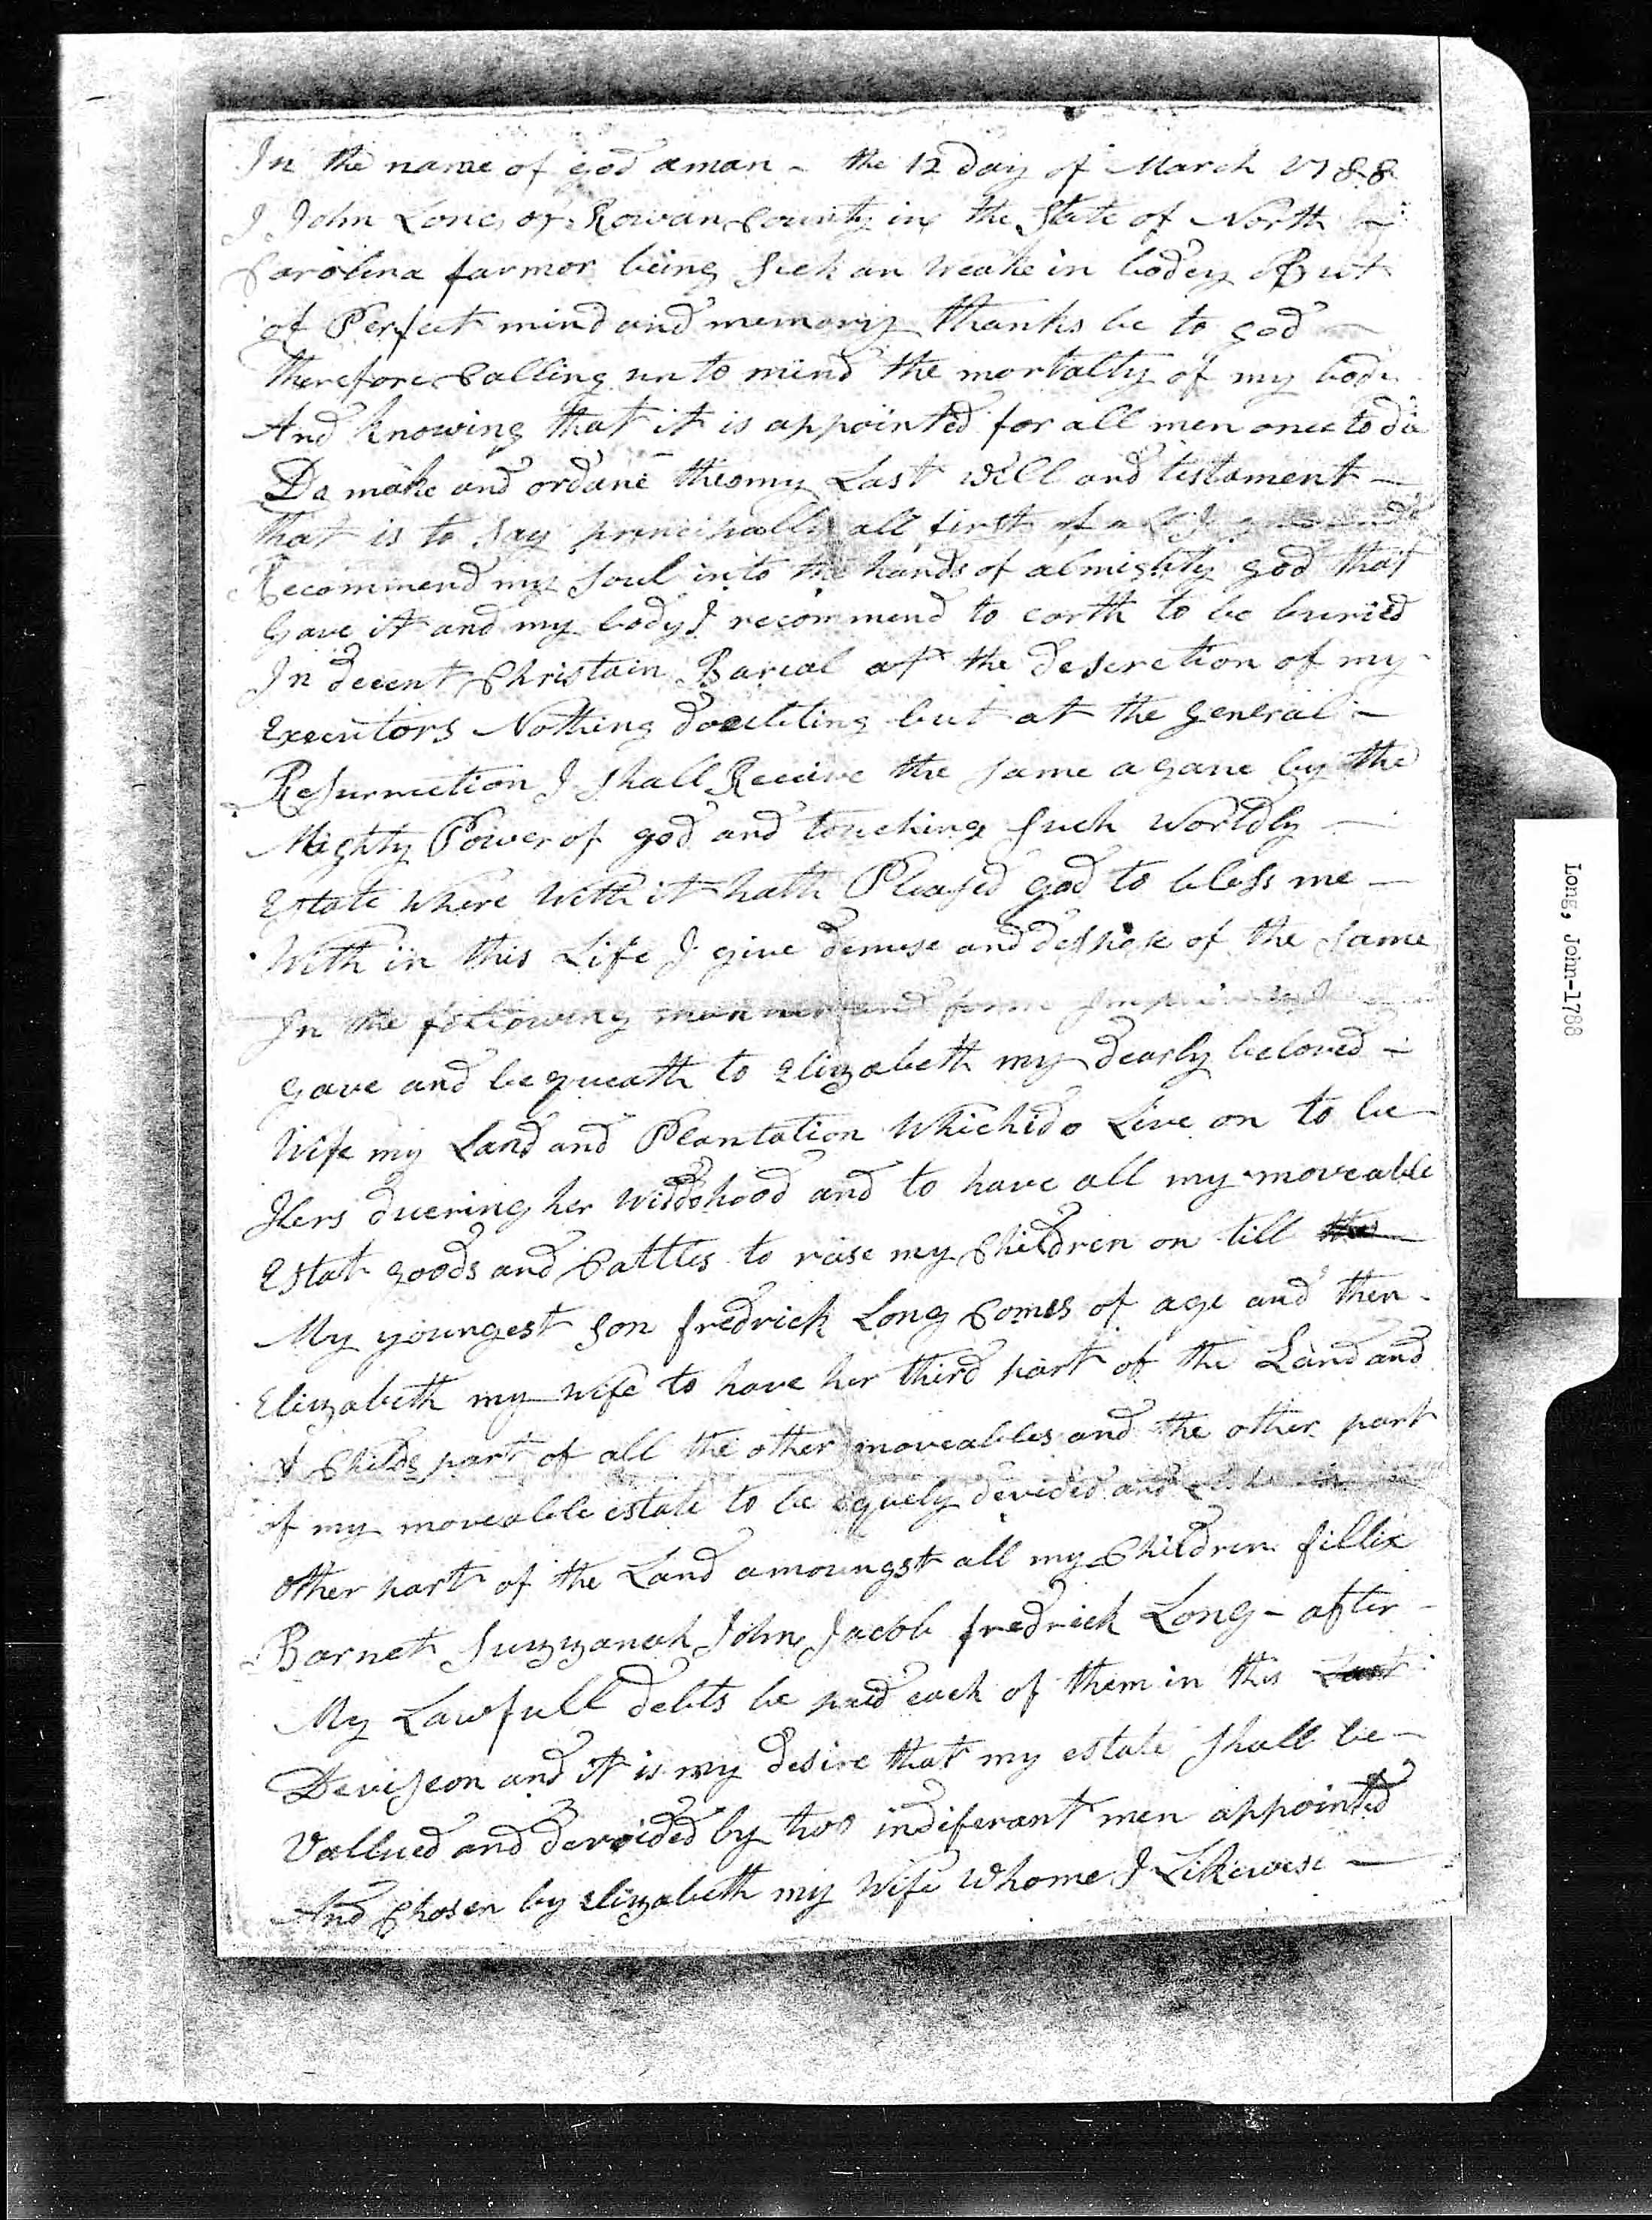 In the name of god aman - the 12 day of March 1788
I John Long of Rowan County in the State of North
Carolina farmor being Sick an weake in bodey But
of Perfect mind and memory thanks be to god
therefore Calling unto mind the mortalty of my body
And knowing that it is appointed for all men once to die
Do make and ordane this my Last will and testament -
that is to say principally all first of all I
Recommend my Soul into the hands of almighty god that
Gave it and my body I recommend to earth to be buried
In decent Christain Barial at the descretion of my
Executors Nothing doubting but at the general -
Resurrection I shall Receive the same agane by the
Mighty Power of god and touching such worldly -
Estate where with it hath Pleased god to bless me -
With in this Life I give demise and despose of the same
In the following manner and form
gave and bequeath to Elizabeth my dearly beloved -
Wife my Land and Plantation Which i do Live on to be
Hers duering her widdohood and to have all my moveable
Estat goods and Cattles to raise my Children on till the
My youngest son fredrick Long Comes of age and then -
Elizabeth my wife to have her third part of the Land and
A Childs part of all the other moveables and the other part
of my moveable estate to be equely devided and
other part of the Land amoungst all my Children fillix
Barnet Suzzanah John Jacob fredrick Long - after -
My Lawfull debts be paid each of them in this Last
Deviseon and it is my desire that my estate shall be -
Vallued and devoided by two indiferant men appointed
And Chosen by Elizabeth my Wife Whome I Likewise -
Long, John-1788